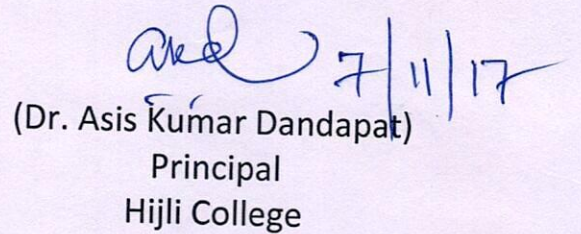 AKD 7/11/17
(Dr. Asis Kumar Dandapat)
Principal
Hijli College